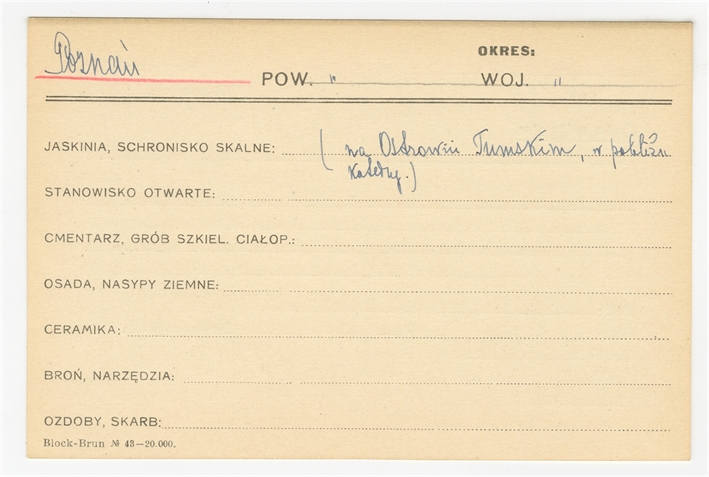 OKRES:
Poznań POW. " WOJ. "
JASKINIA, SCHRONISKO SKALNE: (na Ostrowiu Tumskim, w pobliżu
Katedry.)
STANOWISKO OTWARTE:
CMENTARZ, GRÓB SZKIEL. CIAŁOP.:
OSADA, NASYPY ZIEMNE:
CERAMIKA:
BROŃ, NARZĘDZIA:
OZDOBY, SKARB:
Block-Brun № 43—20.000.